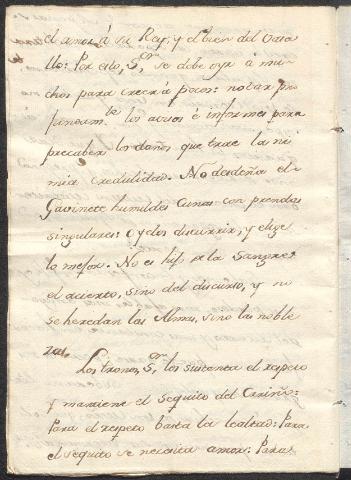 el amor á su Rey, y el bien del Vasa
llo: Por esto, S.or se debe oyr á mu
chos para creer á pocos: notar pro
fundam.te los avisos é informes para
precaber los daños que trae la ni
mia credulidad. No desdeña el
Gavinete humildes Cunas con prendas
singulares: oyelos discurrir, y elige
lo mejor. No es hijo de la Sangre
el acierto, sino del discurso, y no
se heredan las Almas, sino las noble
zas.
Los tronos, S.or, los sustenta el respeto
y mantiene el sequito del Cariño:
Para el respeto basta la lealtad: Para
el sequito se necesita amor: Para